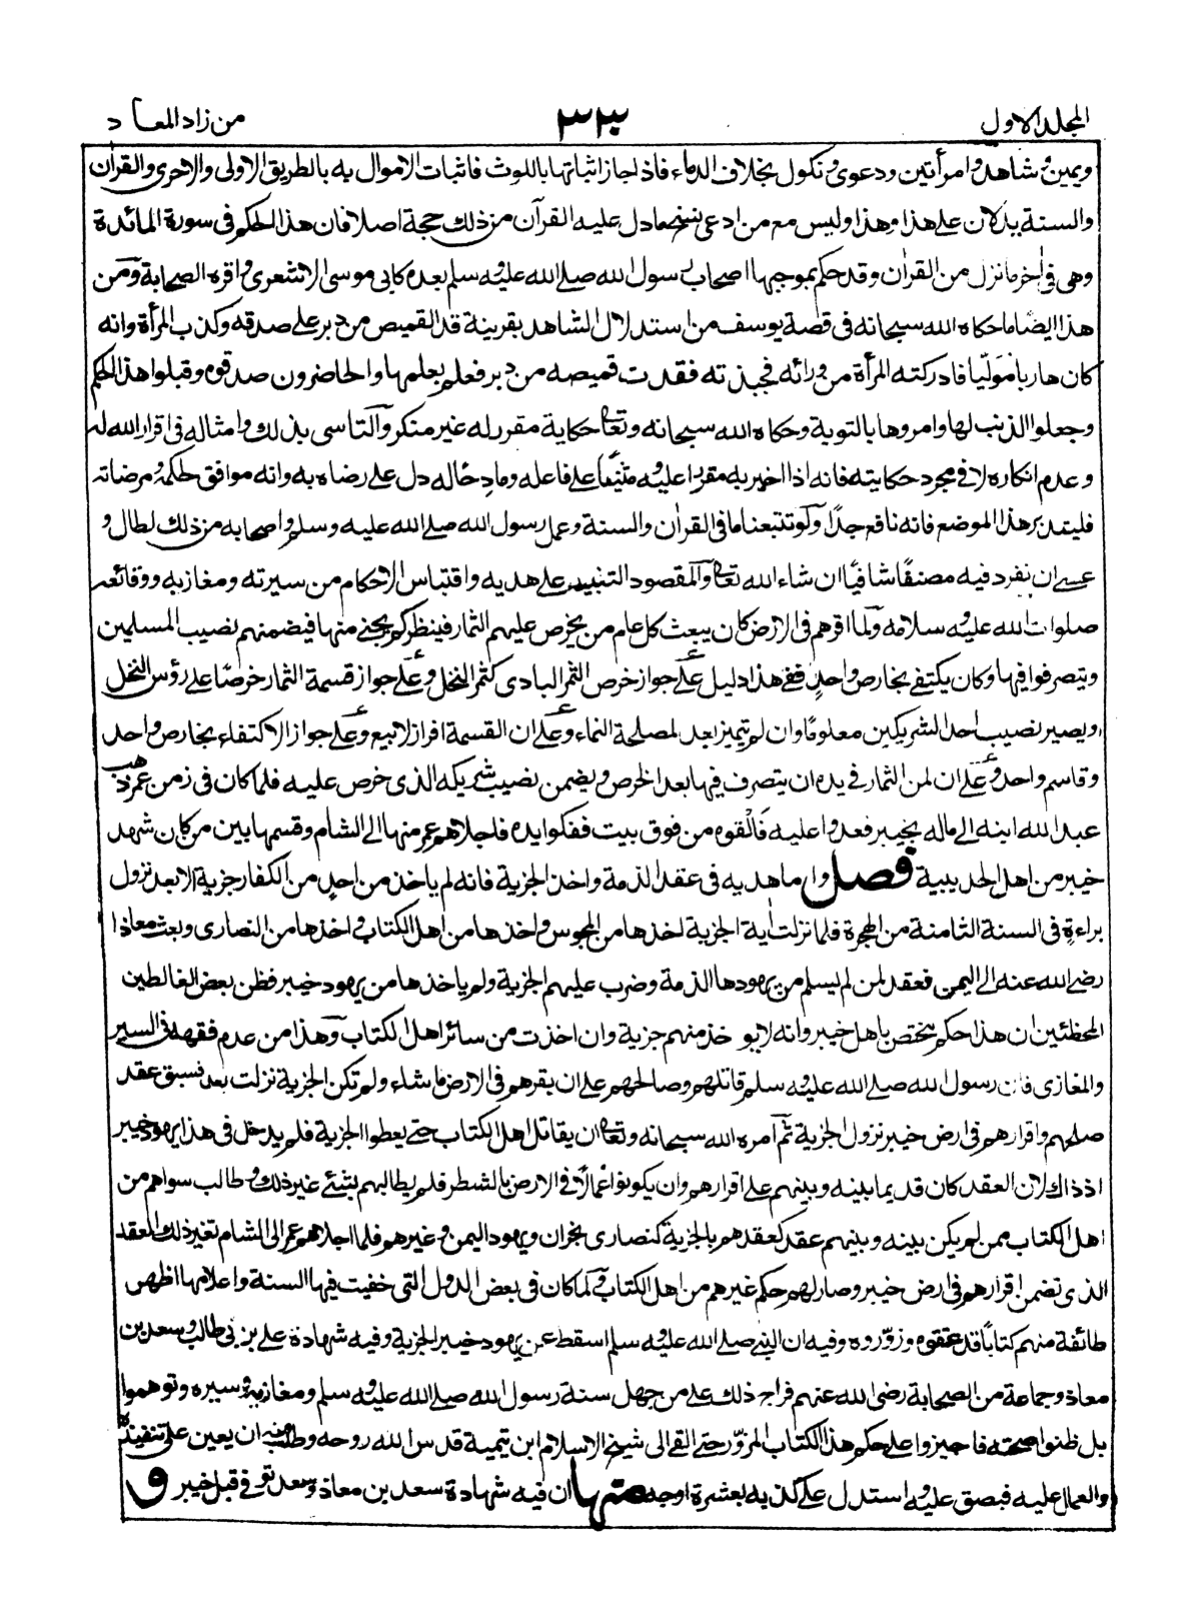 المجلد الاول ٣٣٠ من زاد المعاد
ويمين وشاهد وامرأتين ودعوى ونكول بخلاف الدماء فاذا جاز اثباتها باللوث فاثبات الاموال به بالطريق الاولى والاحرى والقرآن
والسنة يدلان على هذا وهذا وليس مع من ادعى نسخ ما دل عليه القرآن من ذلك حجة اصلا فان هذا الحكم فى سورة المائدة
وهى فى اخر ما نزل من القرآن وقد حكم بموجبها اصحاب رسول الله صلى الله عليه وسلم بعده كابى موسى الاشعرى واقره الصحابة ومن
هذا ايضًا ما حكاه الله سبحانه فى قصة يوسف من استدلال الشاهد بقرينة قد القميص من دبر على صدقه وكذب المرأة وانه
كان هاربا مولّيا فادركته المرأة من ورائه فجبذته فقدت قميصه من دبر فعلم بعلها والحاضرون صدقوه وقبلوا هذا الحكم
وجعلوا الذنب لها وامروها بالتوبة وحكاه الله سبحانه وتعالى حكاية مقرر له غير منكر والتاسى بذلك وامثاله فى اقرار الله له
وعدم انكاره لا فى مجرد حكايته فانه اذا اخبر به مقرا عليه ومثنيًا على فاعله ومادحًا له دل على رضاه به وانه موافق لحكمه ومرضاته
فليتدبر هذا الموضع فانه نافع جدًا ولو تتبعنا ما فى القرآن والسنة وعمل رسول الله صلى الله عليه وسلم واصحابه من ذلك لطال و
عسى ان نفرد فيه مصنفًا شافيًا ان شاء الله تعالى والمقصود التنبيه على هديه واقتباس الاحكام من سيرته ومغازيه ووقائعه
صلوات الله عليه وسلامه ولما اقرهم فى الارض كان يبعث كل عام من يخرص عليهم الثمار فينظر كم يجنى منها فيضمنهم نصيب المسلمين
ويتصرفوا فيها وكان يكتفى بخارص واحد ففى هذا دليل على جواز خرص الثمر البادى كثمر النخل وعلى جواز قسمة الثمار خرصًا على رؤس النخل
ويصير نصيب احد الشريكين معلومًا وان لم يتميز بعد لمصلحة النماء وعلى ان القسمة افراز لا بيع وعلى جواز الاكتفاء بخارص واحد
وقاسم واحد وعلى ان لمن الثمار فى يده ان يتصرف فيها بعد الخرص ويضمن نصيب شريكه الذى خرص عليه فلما كان فى زمن عمر ذهب
عبد الله ابنه الى ماله بخيبر فعدوا عليه فالقوه من فوق بيت ففكوا يده فاجلاهم عمر منها الى الشام وقسمها بين من كان شهد
خيبر من اهل الحديبية فصل واما هديه فى عقد الذمة واخذ الجزية فانه لم ياخذ من احد من الكفار جزية الا بعد نزول
براءة فى السنة الثامنة من الهجرة فلما نزلت اية الجزية اخذها من المجوس واخذها من اهل الكتاب واخذها من النصارى وبعث معاذا
رضى الله عنه الى اليمن فعقد لمن لم يسلم من يهودها الذمة وضرب عليهم الجزية ولم ياخذها من يهود خيبر فظن بعض الغالطين
المخطئين ان هذا حكم يختص باهل خيبر وانه لا يوخذ منهم جزية وان اخذت من سائر اهل الكتاب وهذا من عدم فقهه فى السير
والمغازى فان رسول الله صلى الله عليه وسلم قاتلهم وصالحهم على ان يقرهم فى الارض ما شاء ولم تكن الجزية نزلت بعد فسبق عقد
صلحهم واقرارهم فى ارض خيبر نزول الجزية ثم امره الله سبحانه وتعالى ان يقاتل اهل الكتاب حتى يعطوا الجزية فلم يدخل فى هذا يهود خيبر
اذ ذاك لان العقد كان قديما بينه وبينهم على اقرارهم وان يكونوا عمالًا فى الارض بالشطر فلم يطالبهم بشئ غير ذلك وطالب سواهم من
اهل الكتاب ممن لم يكن بينه وبينهم عقد كعقدهم بالجزية كنصارى نجران ويهود اليمن وغيرهم فلما اجلاهم عمر الى الشام تغير ذلك العقد
الذى تضمن اقرارهم فى ارض خيبر وصار لهم حكم غيرهم من اهل الكتاب ولما كان فى بعض الدول التى خفيت فيها السنة واعلامها اظهر
طائفة منهم كتابًا قد عتقوه وزوّروه وفيه ان النبى صلى الله عليه وسلم اسقط عن يهود خيبر الجزية وفيه شهادة على بن ابى طالب وسعد بن
معاذ وجماعة من الصحابة رضى الله عنهم فراج ذلك على من جهل سنة رسول الله صلى الله عليه وسلم ومغازيه وسيره وتوهموا
بل ظنوا صحته فاجيزوا على حكم هذا الكتاب المزوّر حتى القى الى شيخ الاسلام ابن تيمية قدس الله روحه وطلب منه ان يعين على تنفيذه
والعمل عليه فبصق عليه واستدل على كذبه بعشرة اوجه منها ان فيه شهادة سعد بن معاذ وسعد توفى قبل خيبر و